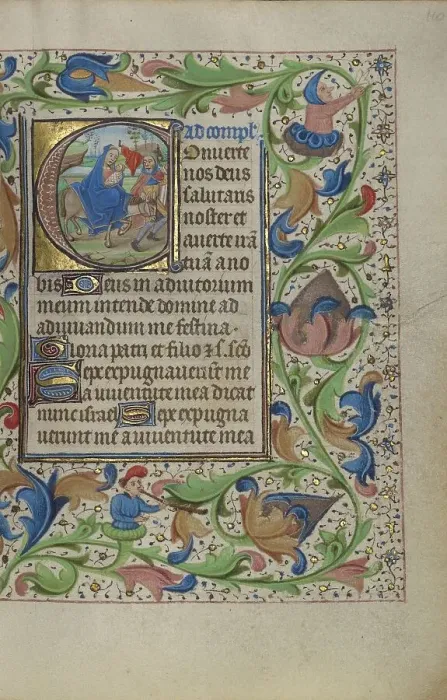 Ad compl'
Onuerte
nos deus
salutaris
noster et
auerte irā
tuā a no
bis Deus in adiutorium
meum intende domine ad
adiuuandum me festina.
Gloria patri et filio & s. scō
Sepe expugnauerūt me
a iuuentute mea dicat
nunc israel Sepe expugna
uerunt me a iuuentute mea